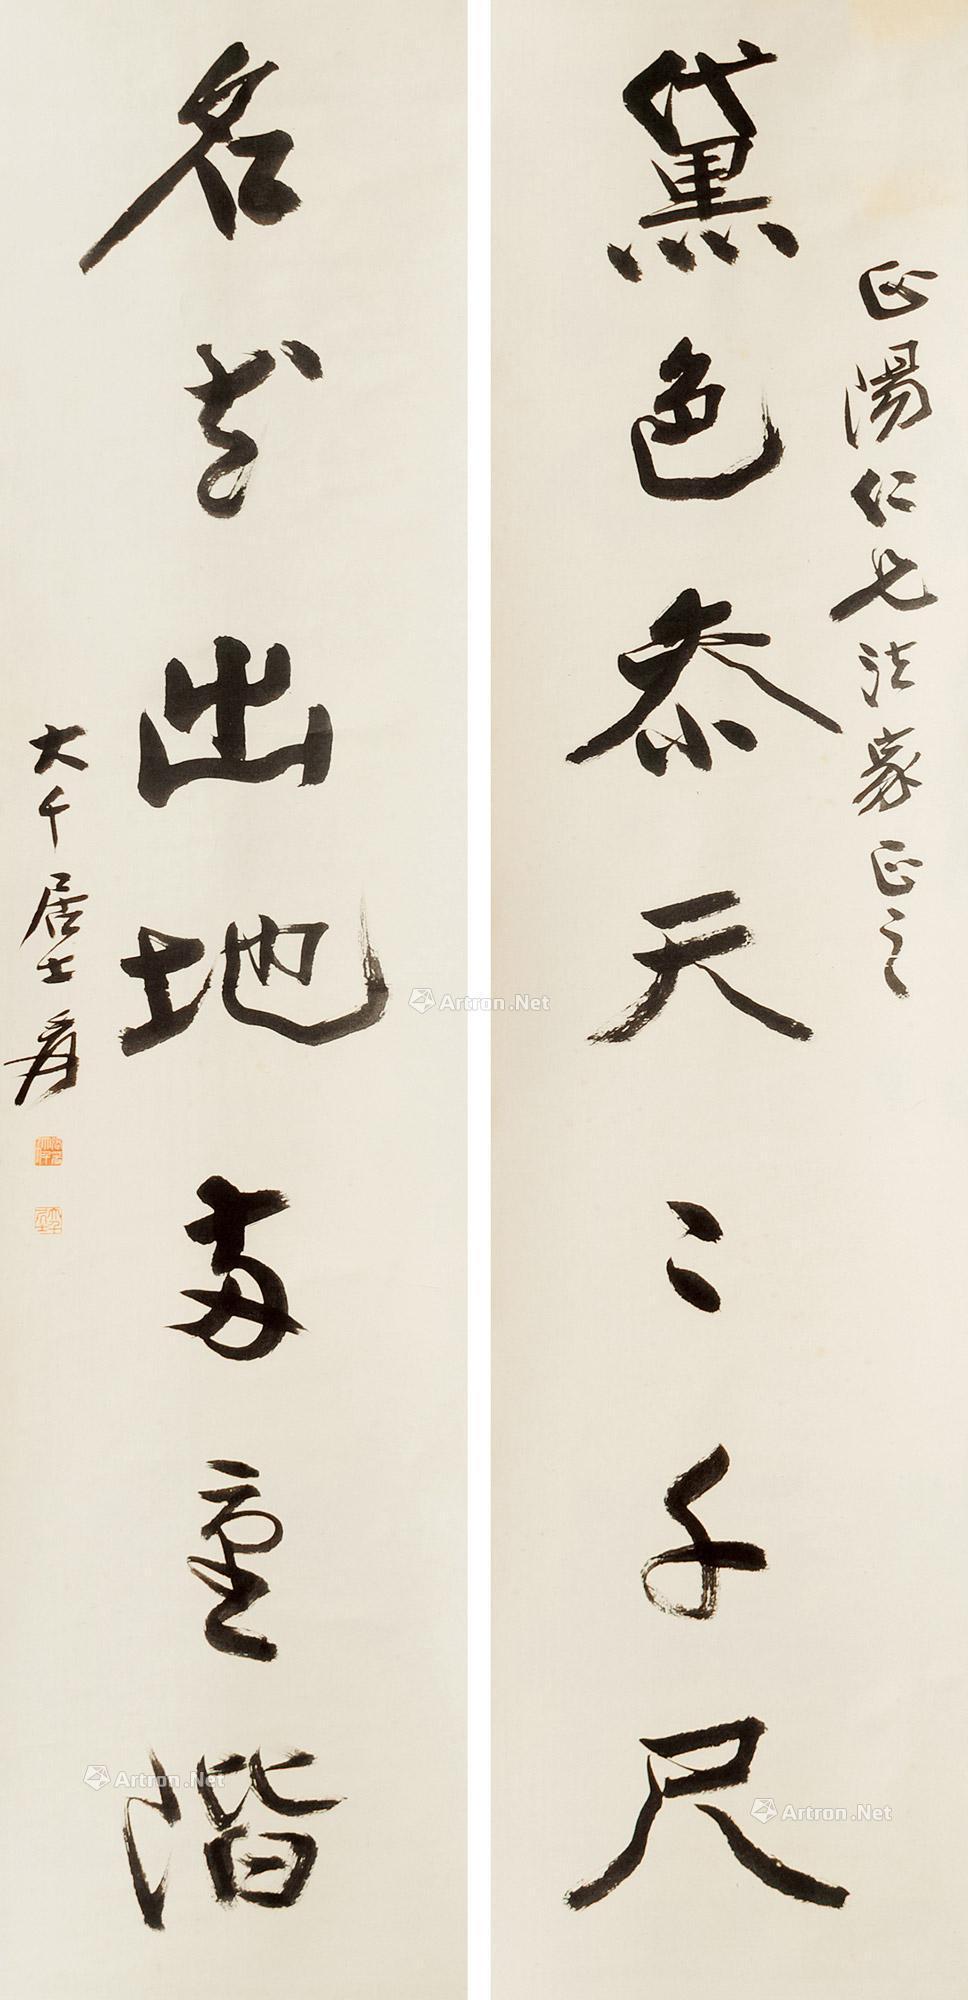 正陽仁兄法家正之
黛色叅天二千尺
名花出地兩重階
大千居士爰
Artron.Net
Artron.Net
Artron.Net